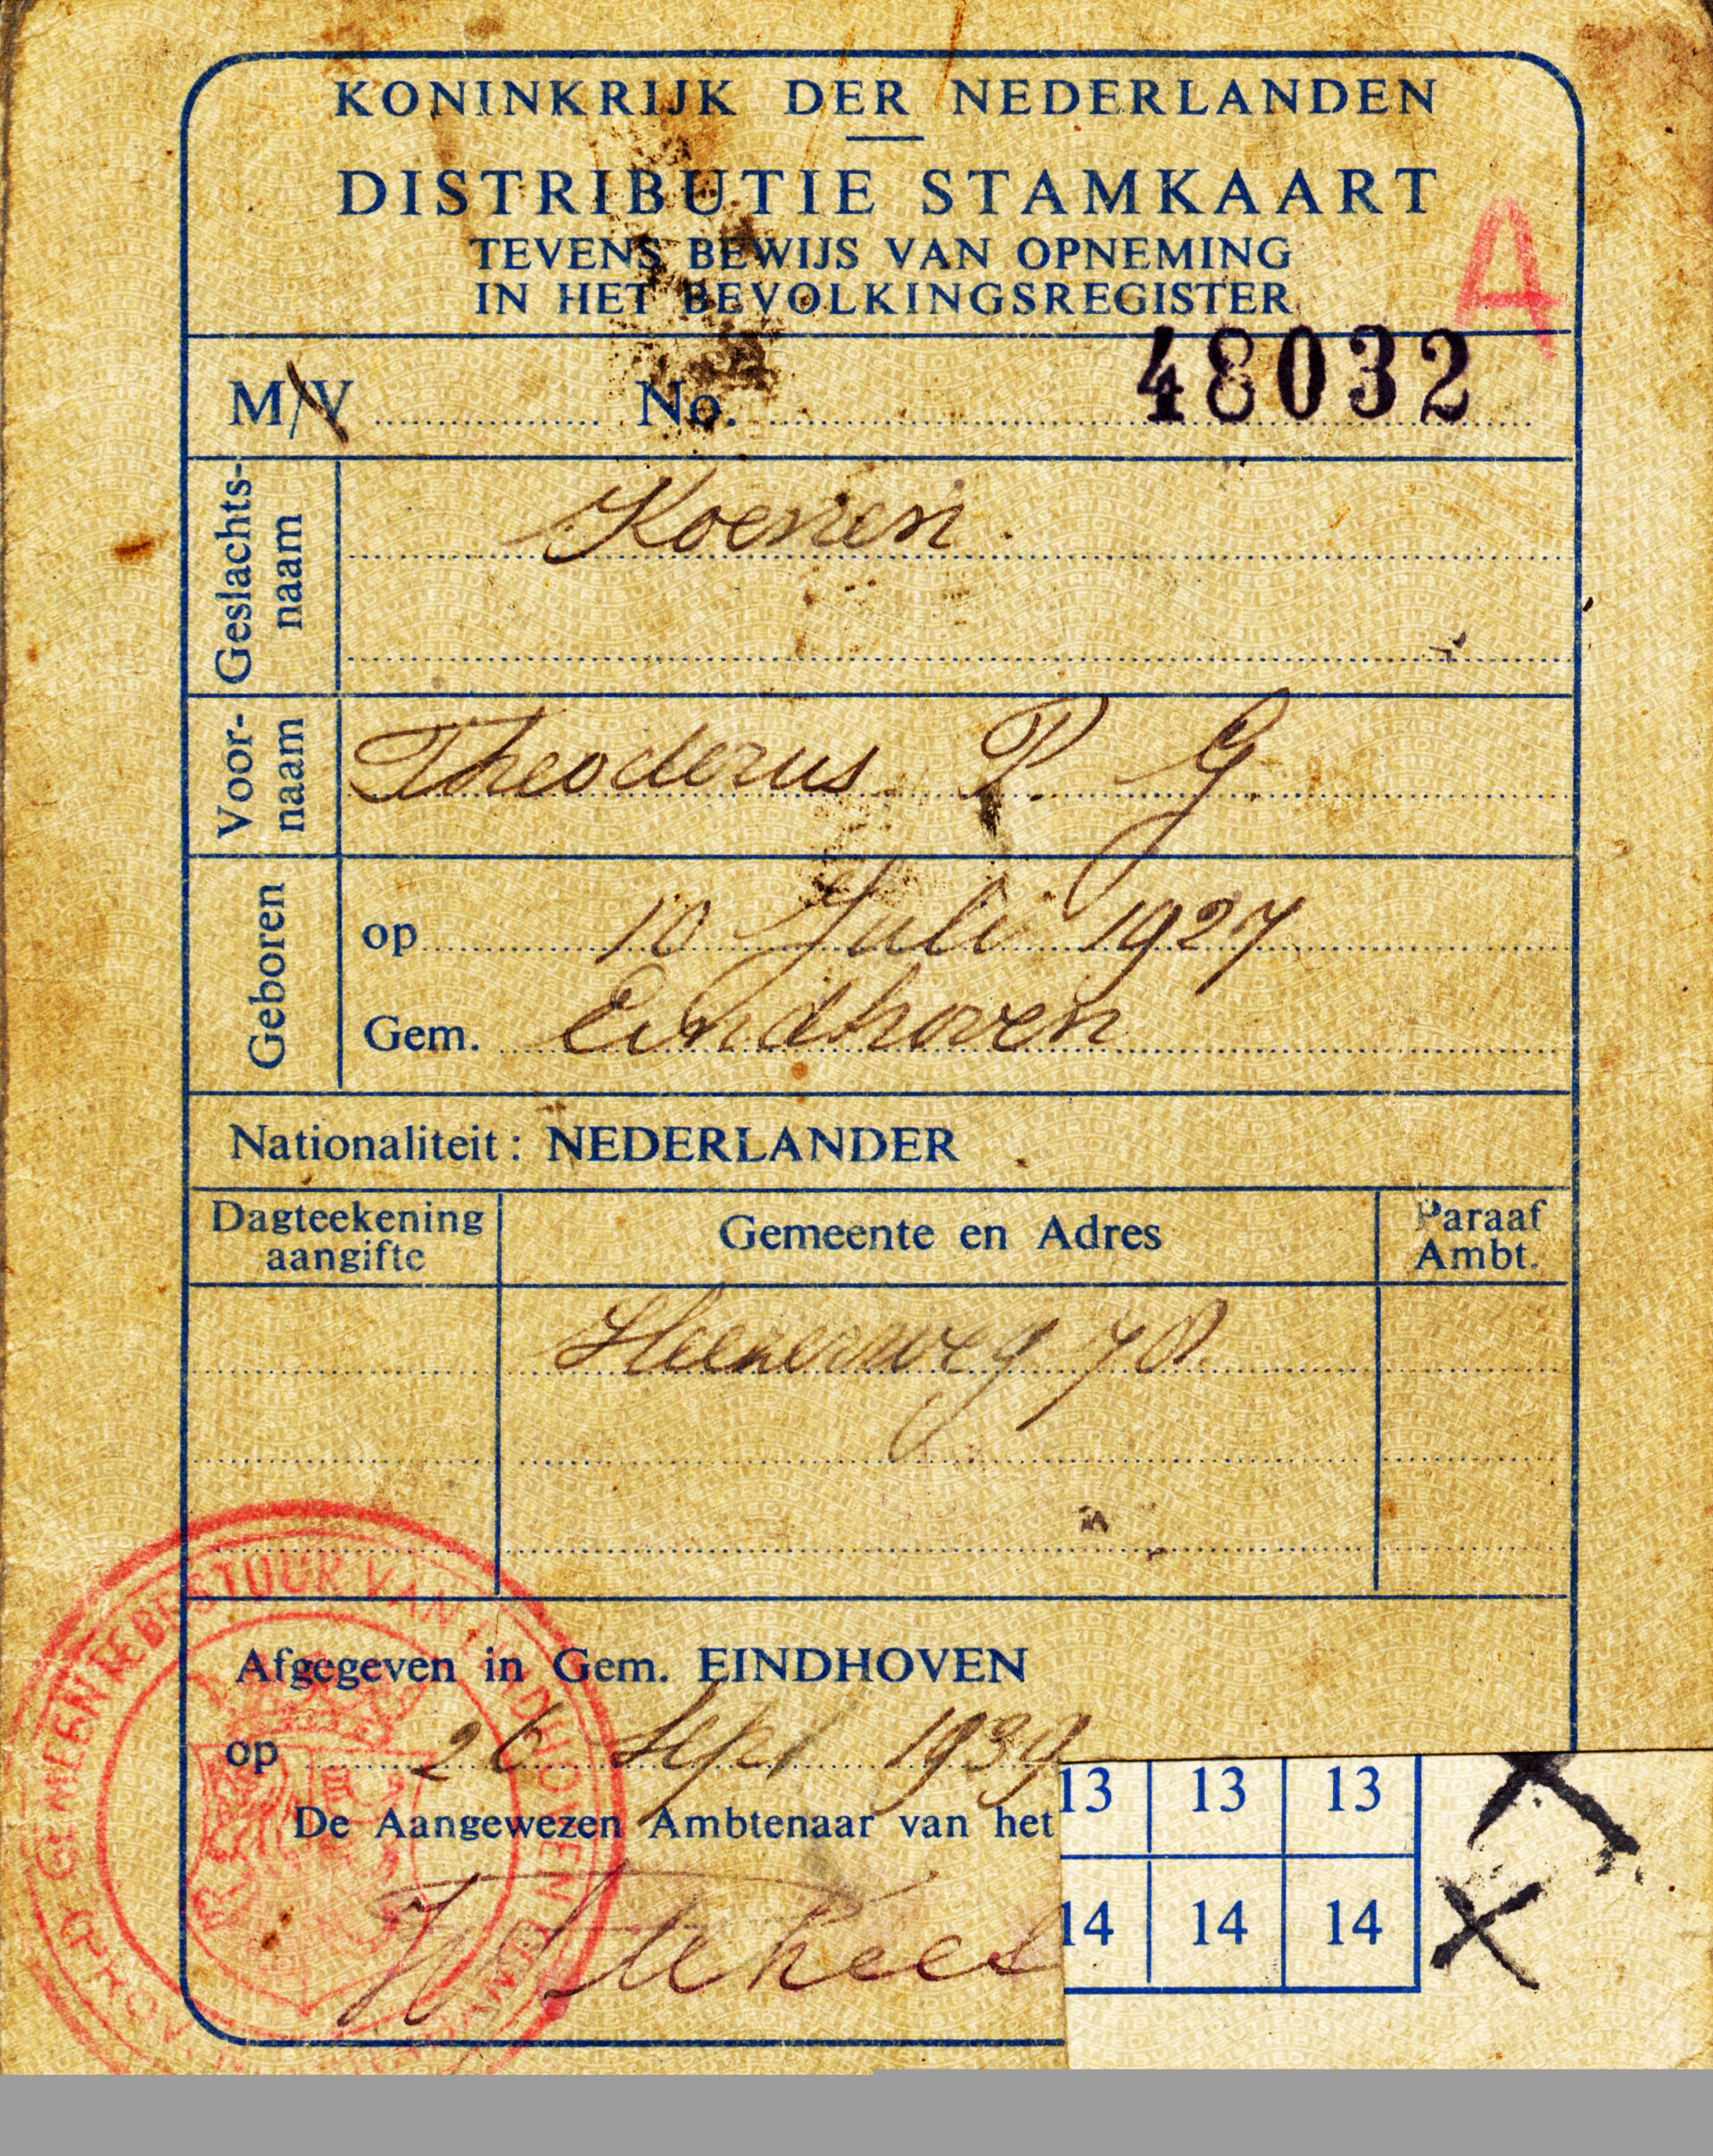 KONINKRIJK DER NEDERLANDEN
DISTRIBUTIE STAMKAART
TEVENS BEWIJS VAN OPNEMING
IN HET BEVOLKINGSREGISTER
A
M/V No. 48032
Geslachts-
naam
Koenen.
Voor-
naam
Theodorus P. G.
Geboren
op 10 Juli 1927
Gem. Eindhoven
Nationaliteit: NEDERLANDER
Dagteekening
aangifte
Gemeente en Adres
Paraaf
Ambt.
Afgegeven in Gem. EINDHOVEN
op 26 Sept 1939
De Aangewezen Ambtenaar van het
13 13 13
14 14 14
GEMEENTEBESTUUR VAN EINDHOVEN